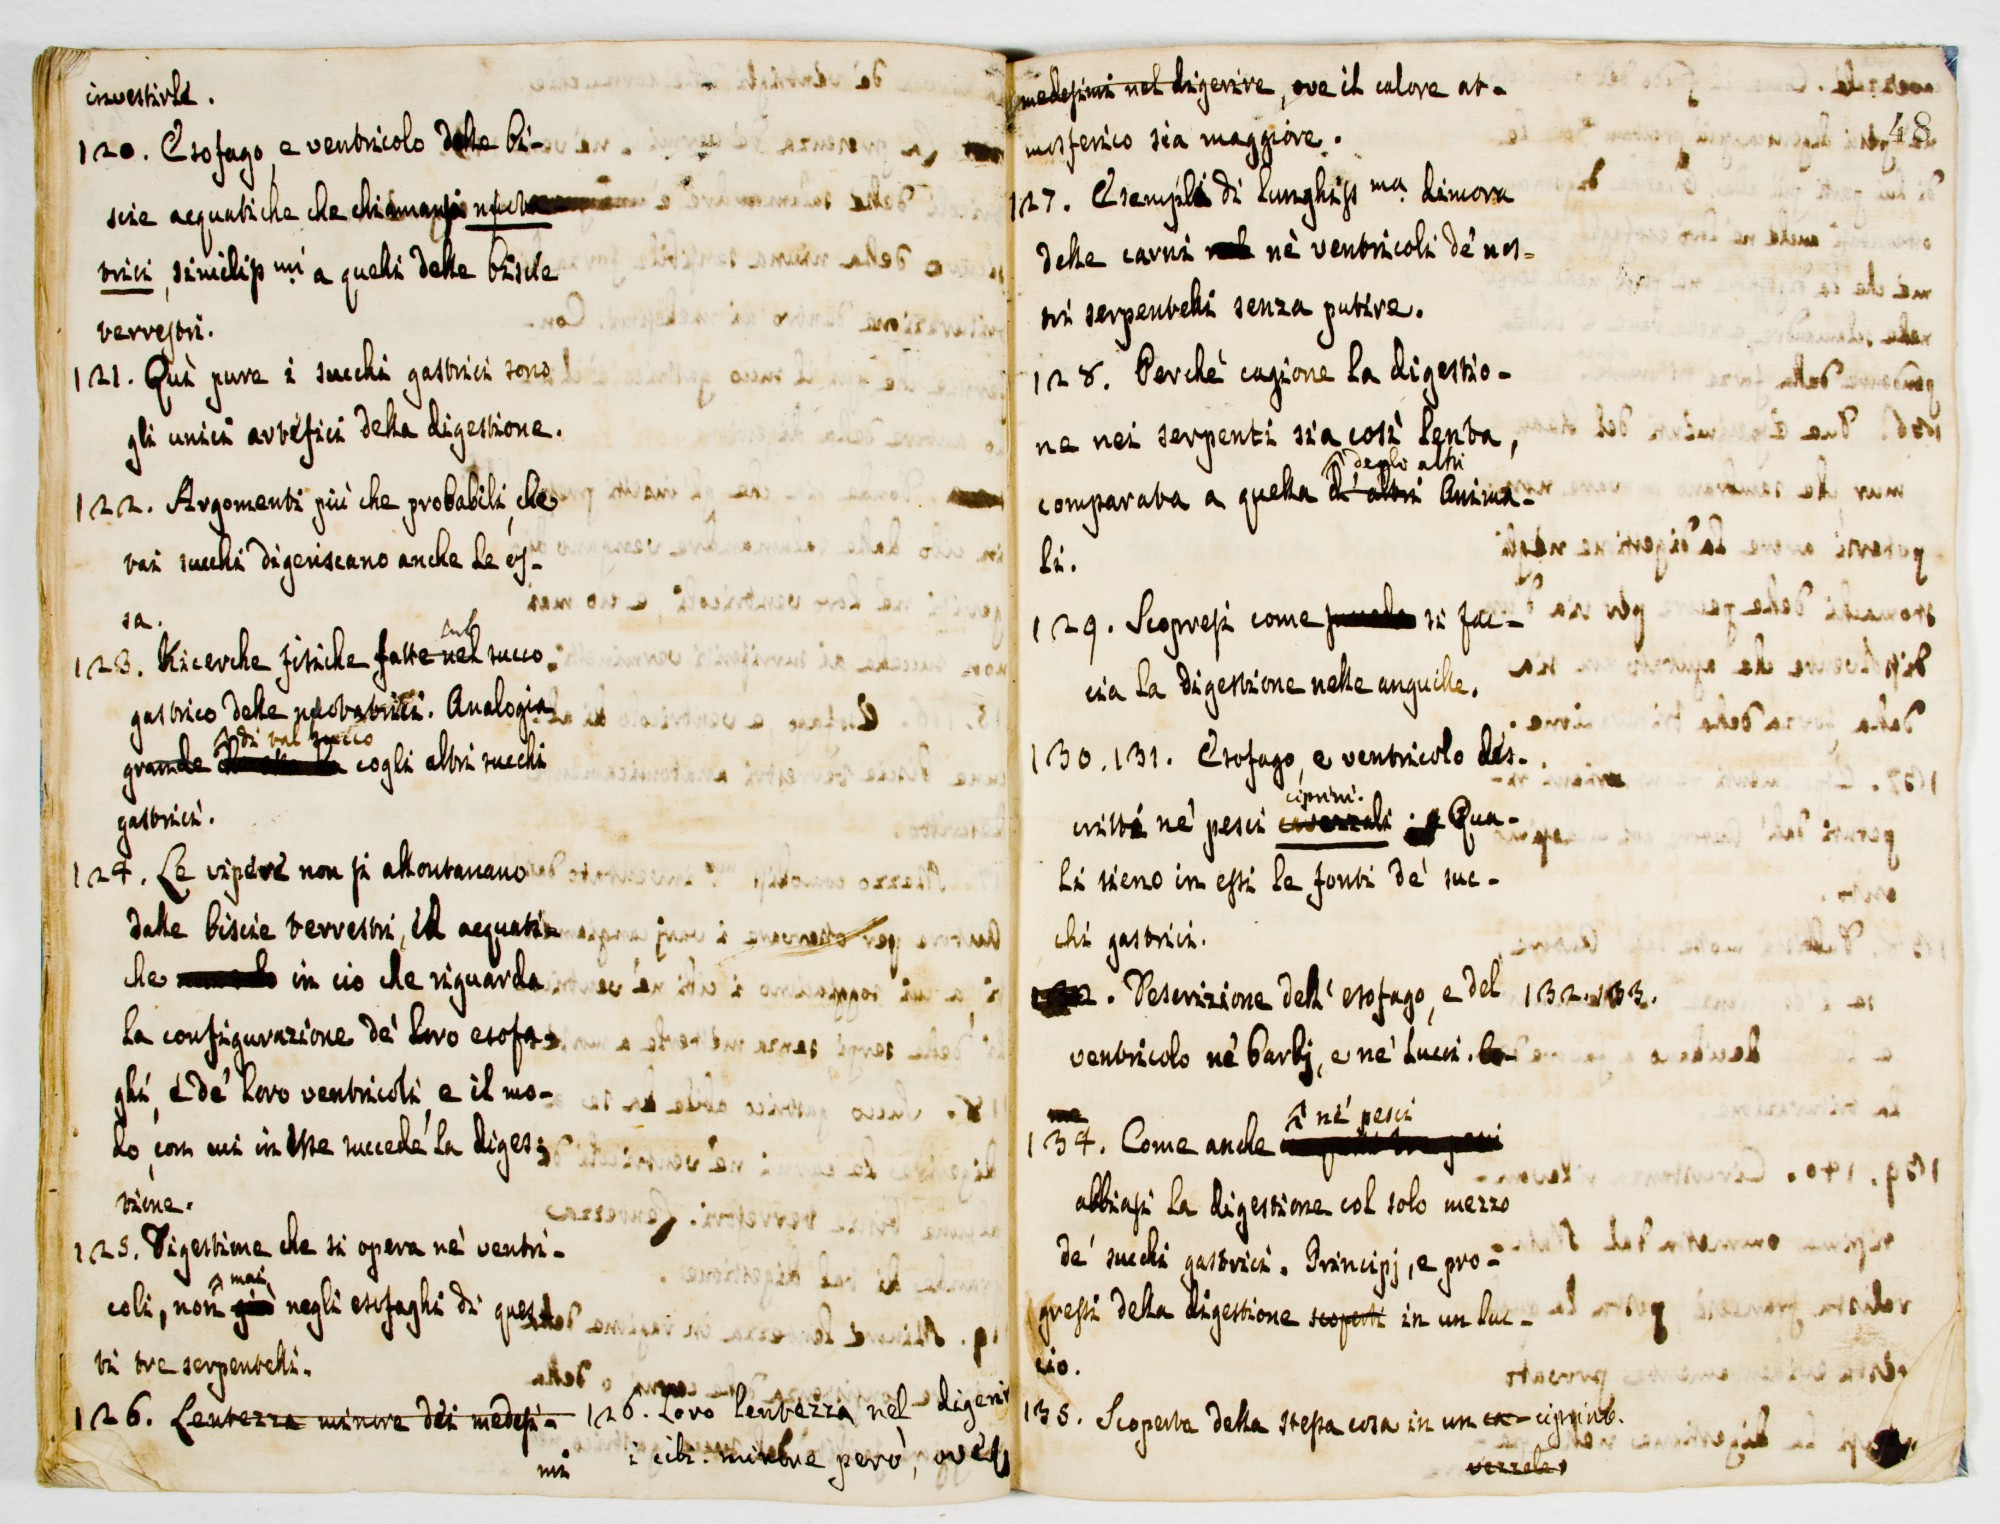 investirle.
120. Esofago, e ventricolo delle bi-
scie acquatiche che chiamansi nuota
trici, similiss mi a quelli delle biscie
terrestri.
121. Quì pure i succhi gastrici sono
gli unici artefici della digestione.
122. Argomenti più che probabili, che
tai succhi digeriscano anche le os-
sa.
123. Ricerche fisiche fatte nel sul succo
gastrico delle nuotatrici. Analogia
grande di tal succo cogli altri succhi
gastrici.
124. Le vipere non si allontanano
dalle biscie terrestri, ed acquati-
che in cio che riguarda
la configurazione de' loro esofa-
ghi, e de' loro ventricoli, e il mo-
do, con cui in esse succede la diges-
tione.
125. Digestione che si opera ne' ventri-
coli, non già mai negli esofaghi di ques-
ti tre serpentelli.
126. Lentezza minore dei medesi-
mi
126. Loro lentezza nel digerir
i cibi. minore però, ove
48
medesimi nel digerire, ove il calore at-
mosferico sia maggiore.
127. Esempli di lunghiss ma. dimora
delle carni ne' ventricoli de' nos-
tri serpentelli senza putire.
128. Perchè cagione la digestio-
ne nei serpenti sia così lenta,
degli altri
comparata a quella d' altri Anima-
li.
129. Scopresi come si fac-
cia la digestione nelle anguille.
130. 131. Esofago, e ventricolo des-
ciprini.
critti ne' pesci cavezzali. Qua-
li sieno in essi le fonti de' suc-
chi gastrici.
132. Descrizione dell' esofago, e del 132. 133.
ventricolo ne' barbj, e ne' lucci. Co-
me
ne' pesci
134. Come anche
abbiasi la digestione col solo mezzo
de' succhi gastrici. Principj, e pro-
gressi della digestione scoperti in un luc-
cio.
135. Scoperta della stessa cosa in un ca- ciprino.
vezzale.